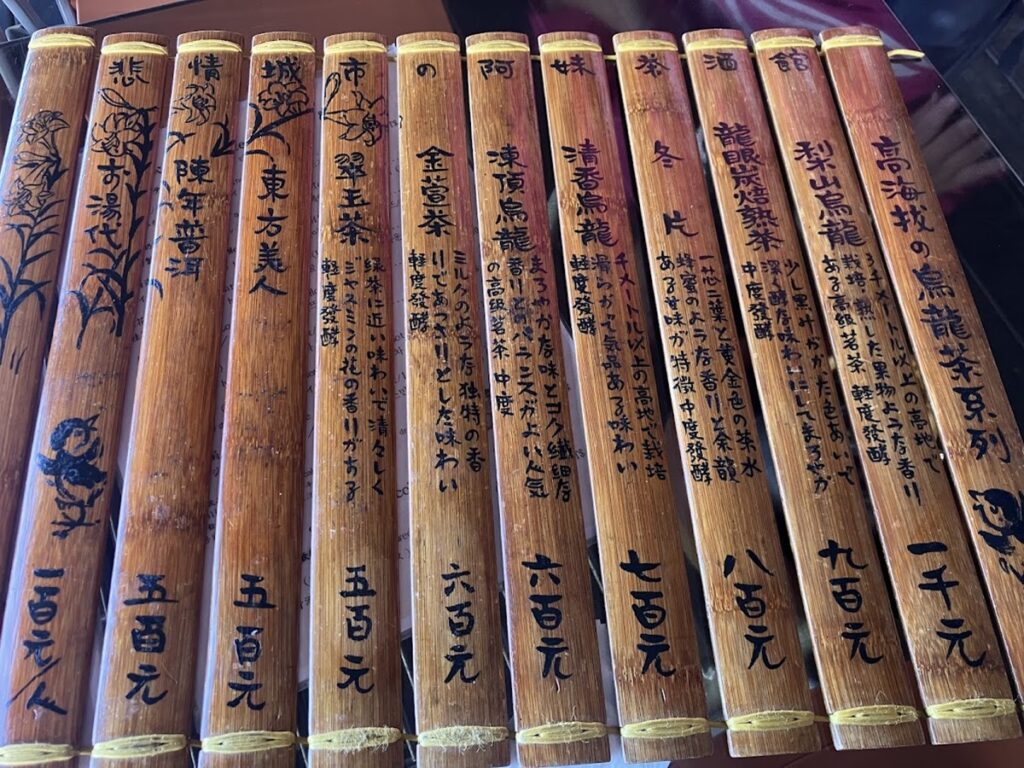 悲情城市の阿妹茶酒館
高海抜の烏龍茶系列
梨山烏龍
3千メートル以上の高地で
栽培、熟した果物ような香り
ある高級茗茶 軽度發酵
一千元
龍眼炭焙熟茶
少し黒叶がかた色あいで
深く醇な味わいにしてまろやか
中度發酵
九百元
冬片
一芯二葉と黄金色の茶水
蜂蜜のような香りと余韻
ある甘味が特徴 中度發酵
八百元
清香烏龍
千メートル以上の高地で栽培
滑らかで気品ある味わい
軽度發酵
七百元
凍頂烏龍
まろやかな味とコク、繊細な
香りとバランスがよい人気
の高級茗茶 中度
六百元
金萱茶
ミルクのような独特の香
りであっさりとした味わい
軽度發酵
六百元
翠玉茶
緑茶に近い味わいで清々しく
ジャスミンの花の香りがする
軽度發酵
五百元
東方美人
五百元
陳年普洱
五百元
お湯代
一百元/人